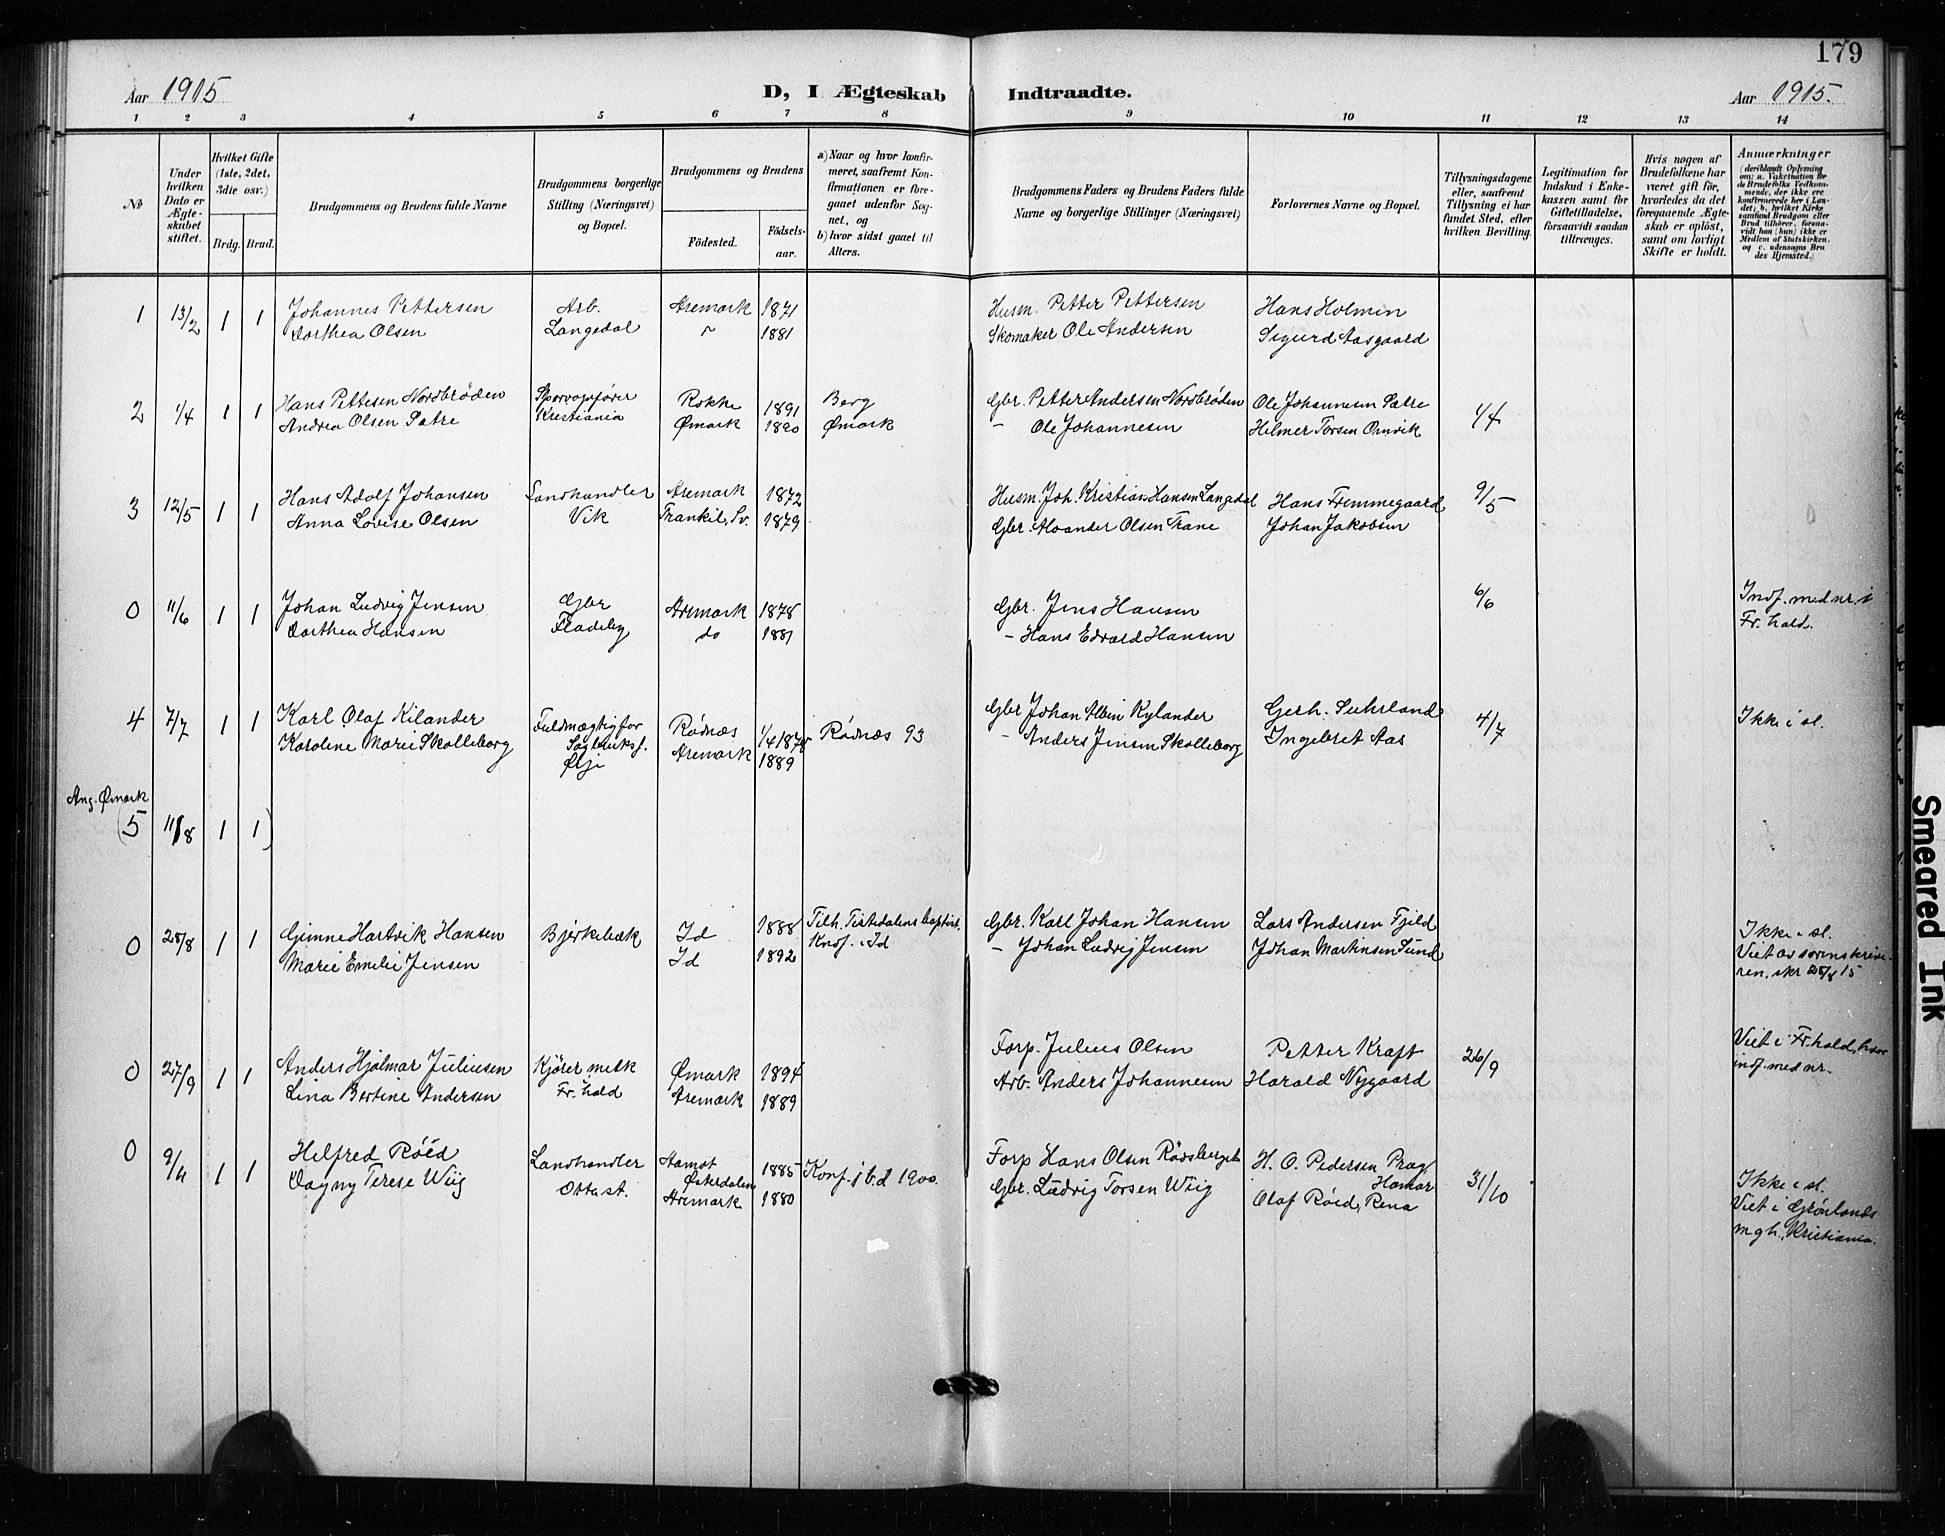 179
Aar 1915
D, I Ægteskab Indtraadte.
Aar 1915.
1 2 3 4 5 6 7 8 9 10 11 12 13 14
No
Under hvilken Dato er Ægteskabet stiftet.
Hvilket Gifte (1ste, 2det, 3die osv.)
Brdg. Brud.
Brudgommens og Brudens fulde Navne
Brudgommens borgerlige Stilling (Næringsvei) og Bopæl.
Brudgommens og Brudens
Fødested.
Fødselsaar.
a) Naar og hvor konfirmeret, saafremt Konfirmationen er foregaaet udenfor Sognet, og
b) hvor sidst gaaet til Alters.
Brudgommens Faders og Brudens Faders fulde Navne og borgerlige Stillinger (Næringsvei)
Forlovernes Navne og Bopæl.
Tillysningsdagene eller, saafremt Tillysning ei har fundet Sted, efter hvilken Bevilling.
Legitimation for Indskud i Enkekassen samt for Giftetilladelse, forsaavidt saadan tiltrænges.
Hvis nogen af Brudefolkene har været gift før, hvorledes da det foregaaende Ægteskab er opløst, samt om lovligt Skifte er holdt.
Anmærkninger
(deriblandt Oplysning om: a. Vaksination for de Brudefolks Vedkommende, der ikke ere konfirmerede her i Landet; b. hvilket Kirkesamfund Brudgom eller Brud tilhører, forsaavidt han (hun) ikke er Medlem af Statskirken, og c. udensogns Brudes Hjemsted.)
1 13/2 1 1 Johannes Pettersen Arb. Aremark 1871 Husm. Petter Pettersen Hans Holmen
Dorthea Olsen Langedal " 1881 Skomaker Ole Andersen Sigurd Aasgaard
2 1/4 1 1 Hans Pettesen Nordbrøden Sporvognfører Rokke 1891 Berg Gbr. Petter Andersen Nordbrøden Ole Johannesen Sætre 1/4
Andrea Olsen Sætre Kristiania Ømark 1890 Ømark - Ole Johannesen Helmer Torsen Ørnvik
3 12/5 1 1 Hans Adolf Johansen Landhandler Aremark 1872 Husm. Joh. Kristian Hansen Langedal Hans Fremmegaard 9/5
Anna Lovise Olsen Vik Trankil, Sv. 1879 Gbr. Olsen Trane Johan Jakobsen
0 11/6 1 1 Johan Ludvig Jensen Gbr Aremark 1878 Gbr. Jens Hansen 6/6 Indf. med nr. i
Dorthea Hansen Fladeby do 1881 - Hans Edvald Hansen Fr.hald.
4 7/7 1 1 Karl Olaf Kilander Fuldmægtig for Rødnæs 1/4 1878 Rødnæs 93 Gbr Johan Albin Kylander Gerh. Suhrland 4/7 Ikke i sl.
Karoline Marie Skolleborg Aremark 1889 - Anders Jensen Skolleborg Ingebret Aas
Ørje
Ang. Ømark
(5 11/8 1 1)
0 28/8 1 1 Gimne Hartvik Hansen Bjerkebæk Id 1888 Tilh. Tistedalens baptist. Gbr. Karl Johan Hansen Lars Andersen Fjeld Ikke i sl.
Marie Emilie Jensen Id 1892 Konf. i Id - Johan Ludvig Jensen Johan Martinsen Sund Viet av sorenskrive-
ren, skr 28/8 15
0 27/9 1 1 Anders Hjalmar Juliusen Kjører melk Ømark 1894 Forp. Julius Olsen Petter Kraft 26/9 Viet i Fr.hald, hvor
Lina Bertine Andersen Fr.hald Aremark 1889 Arb. Anders Johannesen Harald Nygaard indf. med nr.
0 9/11 1 1 Helfred Røed Landhandler Aamot Østerdalen 1885 Konf. i b.d 1900. Forp Hans Olsen Rødsberget H. O. Pedersen Præg, Hamar 31/10 Ikke i sl.
Dagny Terese Wiig Otta st. Aremark 1880 Gbr. Ludvig Torsen Wiig Olaf Røed, Rena Viet i Grønlands
mgh, Kristiania.
Smeared Ink